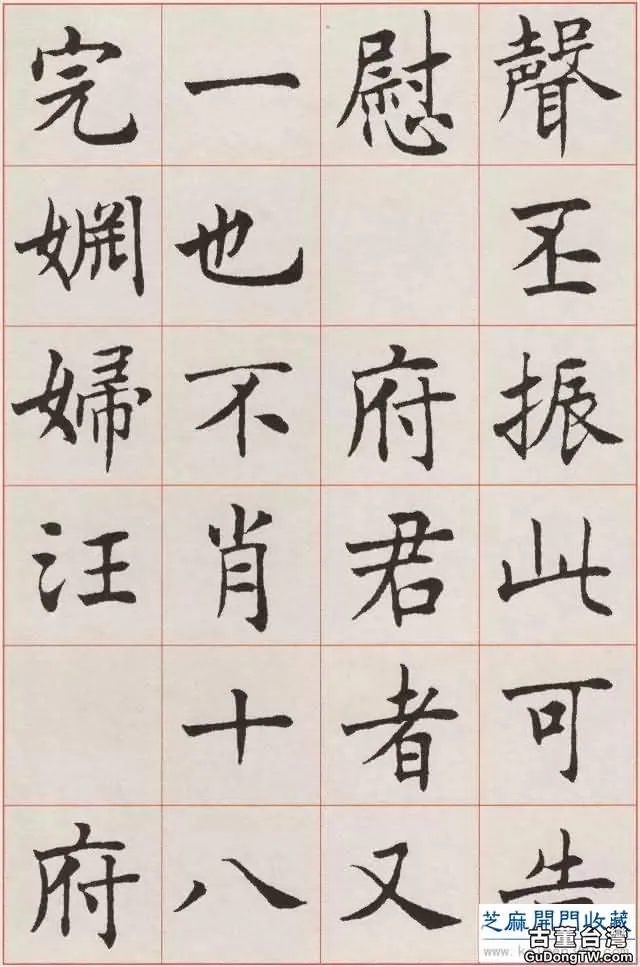 聲丕振此可告
慰 府君者又
一也不肖十八
完婣婦汪 府
芝麻開門收藏
古董台灣
GuDongTW.com